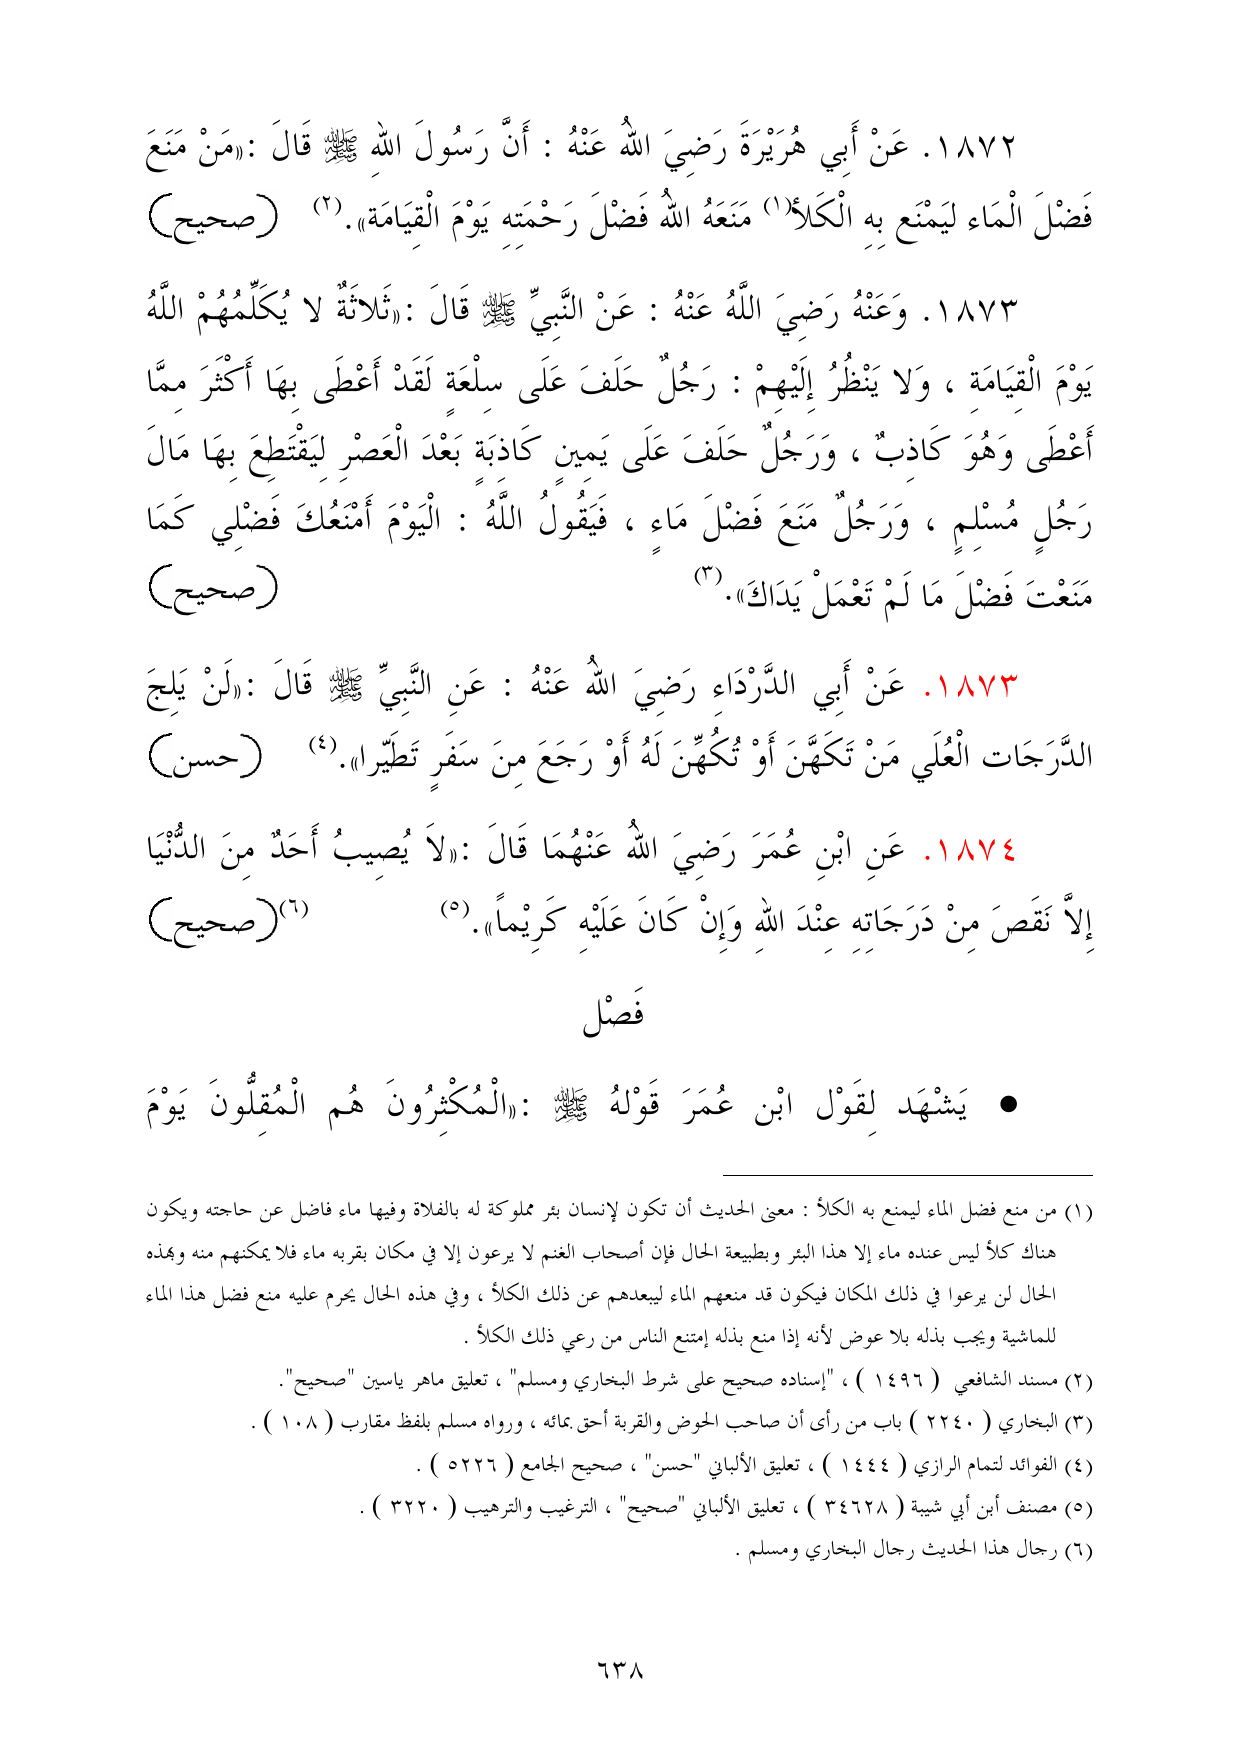 ١٨٧٢. عَنْ أَبِي هُرَيْرَةَ رَضِيَ اللهُ عَنْهُ : أَنَّ رَسُولَ اللهِ ﷺ قَالَ :«مَنْ مَنَعَ
فَضْلَ الْمَاء لِيَمْنَع بِهِ الْكَلأ(١) مَنَعَهُ اللهُ فَضْلَ رَحْمَتِهِ يَوْمَ الْقِيَامَة».(٢) (صحيح)
١٨٧٣. وَعَنْهُ رَضِيَ اللَّهُ عَنْهُ : عَنْ النَّبِيِّ ﷺ قَالَ :«ثَلاثَةٌ لا يُكَلِّمُهُمْ اللَّهُ
يَوْمَ الْقِيَامَةِ ، وَلا يَنْظُرُ إِلَيْهِمْ : رَجُلٌ حَلَفَ عَلَى سِلْعَةٍ لَقَدْ أَعْطَى بِهَا أَكْثَرَ مِمَّا
أَعْطَى وَهُوَ كَاذِبٌ ، وَرَجُلٌ حَلَفَ عَلَى يَمِينٍ كَاذِبَةٍ بَعْدَ الْعَصْرِ لِيَقْتَطِعَ بِهَا مَالَ
رَجُلٍ مُسْلِمٍ ، وَرَجُلٌ مَنَعَ فَضْلَ مَاءٍ ، فَيَقُولُ اللَّهُ : الْيَوْمَ أَمْنَعُكَ فَضْلِي كَمَا
مَنَعْتَ فَضْلَ مَا لَمْ تَعْمَلْ يَدَاكَ».(٣) (صحيح)
١٨٧٣. عَنْ أَبِي الدَّرْدَاءِ رَضِيَ اللهُ عَنْهُ : عَنِ النَّبِيِّ ﷺ قَالَ :«لَنْ يَلِجَ
الدَّرَجَات الْعُلَي مَنْ تَكَهَّنَ أَوْ تُكُهِّنَ لَهُ أَوْ رَجَعَ مِنَ سَفَرٍ تَطَيّرا».(٤) (حسن)
١٨٧٤. عَنِ ابْنِ عُمَرَ رَضِيَ اللهُ عَنْهُمَا قَالَ :«لاَ يُصِيبُ أَحَدٌ مِنَ الدُّنْيَا
إِلاَّ نَقَصَ مِنْ دَرَجَاتِهِ عِنْدَ اللهِ وَإِنْ كَانَ عَلَيْهِ كَرِيْماً».(٥) (٦)(صحيح)
فَصْل
● يَشْهَد لِقَوْل ابْن عُمَرَ قَوْلهُ ﷺ :«الْمُكْثِرُونَ هُم الْمُقِلُّونَ يَوْمَ
(١) من منع فضل الماء ليمنع به الكلأ : معنى الحديث أن تكون لإنسان بئر مملوكة له بالفلاة وفيها ماء فاضل عن حاجته ويكون
هناك كلأ ليس عنده ماء إلا هذا البئر وبطبيعة الحال فإن أصحاب الغنم لا يرعون إلا في مكان بقربه ماء فلا يمكنهم منه وبهذه
الحال لن يرعوا في ذلك المكان فيكون قد منعهم الماء ليبعدهم عن ذلك الكلأ ، وفي هذه الحال يحرم عليه منع فضل هذا الماء
للماشية ويجب بذله بلا عوض لأنه إذا منع بذله إمتنع الناس من رعي ذلك الكلأ .
(٢) مسند الشافعي ( ١٤٩٦ ) ، "إسناده صحيح على شرط البخاري ومسلم" ، تعليق ماهر ياسين "صحيح".
(٣) البخاري ( ٢٢٤٠ ) باب من رأى أن صاحب الحوض والقربة أحق بمائه ، ورواه مسلم بلفظ مقارب ( ١٠٨ ) .
(٤) الفوائد لتمام الرازي ( ١٤٤٤ ) ، تعليق الألباني "حسن" ، صحيح الجامع ( ٥٢٢٦ ) .
(٥) مصنف أبن أبي شيبة ( ٣٤٦٢٨ ) ، تعليق الألباني "صحيح" ، الترغيب والترهيب ( ٣٢٢٠ ) .
(٦) رجال هذا الحديث رجال البخاري ومسلم .
٦٣٨